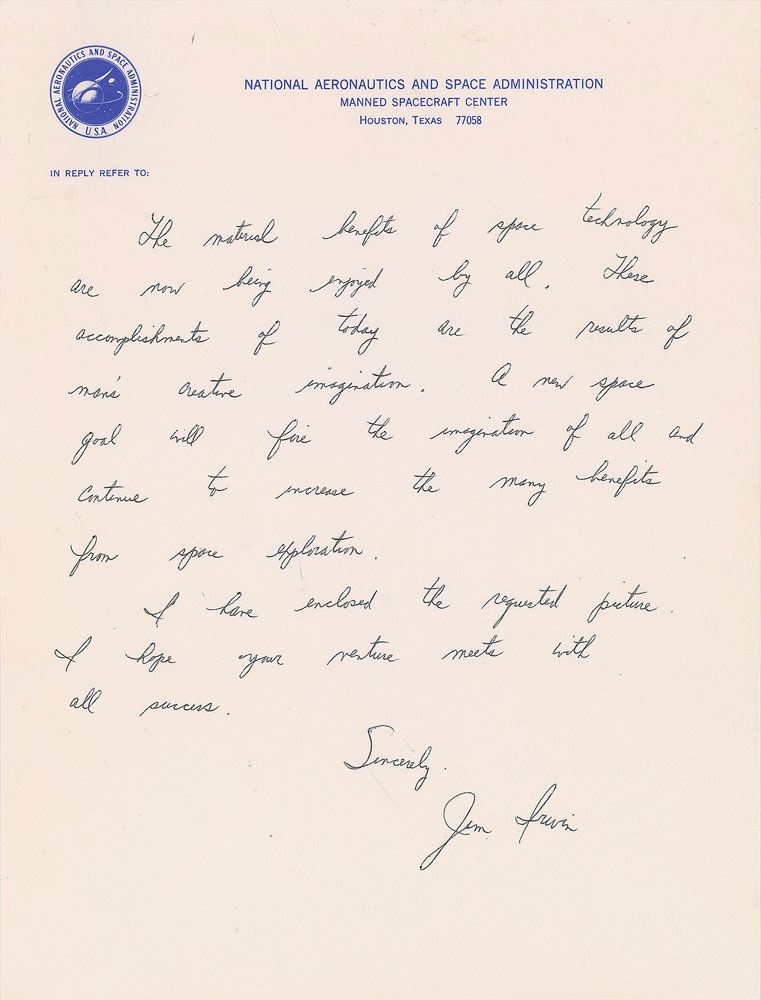 NATIONAL AERONAUTICS AND SPACE ADMINISTRATION
U.S.A.
NATIONAL AERONAUTICS AND SPACE ADMINISTRATION
MANNED SPACECRAFT CENTER
HOUSTON, TEXAS 77058
IN REPLY REFER TO:
The material benefits of space technology
are now being enjoyed by all. These
accomplishments of today are the results of
mans' creative imagination. A new space
goal will fire the imagination of all and
continue to increase the many benefits
from space exploration.
I have enclosed the requested picture.
I hope your venture meets with
all success.
Sincerely,
Jim Irwin